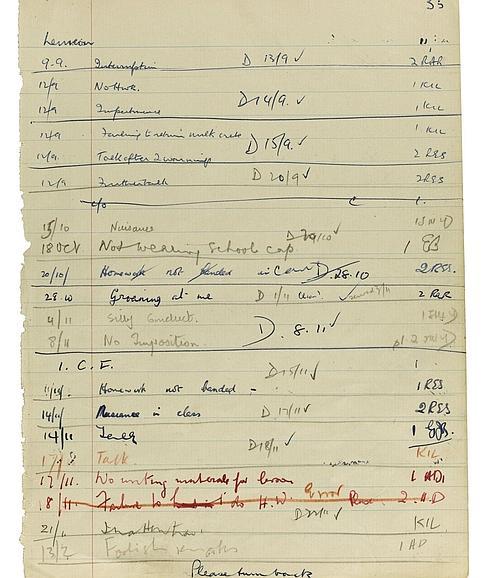 Lennon
9.9. Interruption D 13/9 ✓ 2 RAR
12/9 No H.wk. 1 KIL
D 14/9. ✓
12/9 Impertinence 1 KIL
12/9 Failing to return milk crate 1 KIL
D 15/9. ✓
12/9 Talk after 2 warnings 2 RSS
12/9 Further talk D 20/9 ✓ 2 RSS
c/o C 1.
15/10 Nuisance
18 Oct Not wearing school cap 1
20/10/ Homework not handed in D. 28.10 2 RSS.
28.10 Groaning at me D 1/11 ✓ 2 RAR
4/11 Silly Conduct.
D. 8.11 ✓
8/11 No Imposition.
1. C. F. D 15/11 ✓ 1
Homework not handed - 1 RSS
14/11 Nuisance in class D 17/11 ✓ 2 RSS
14/11 Talk 1
D 18/11 ✓
Talk KIL
17/11. No writing materials for lesson 1 AD
18/11 Failure to do H.W. Error 2. A.D
D 22/11 ✓
21/11 Inattention KIL
Foolish remarks 1 AD
Please turn back